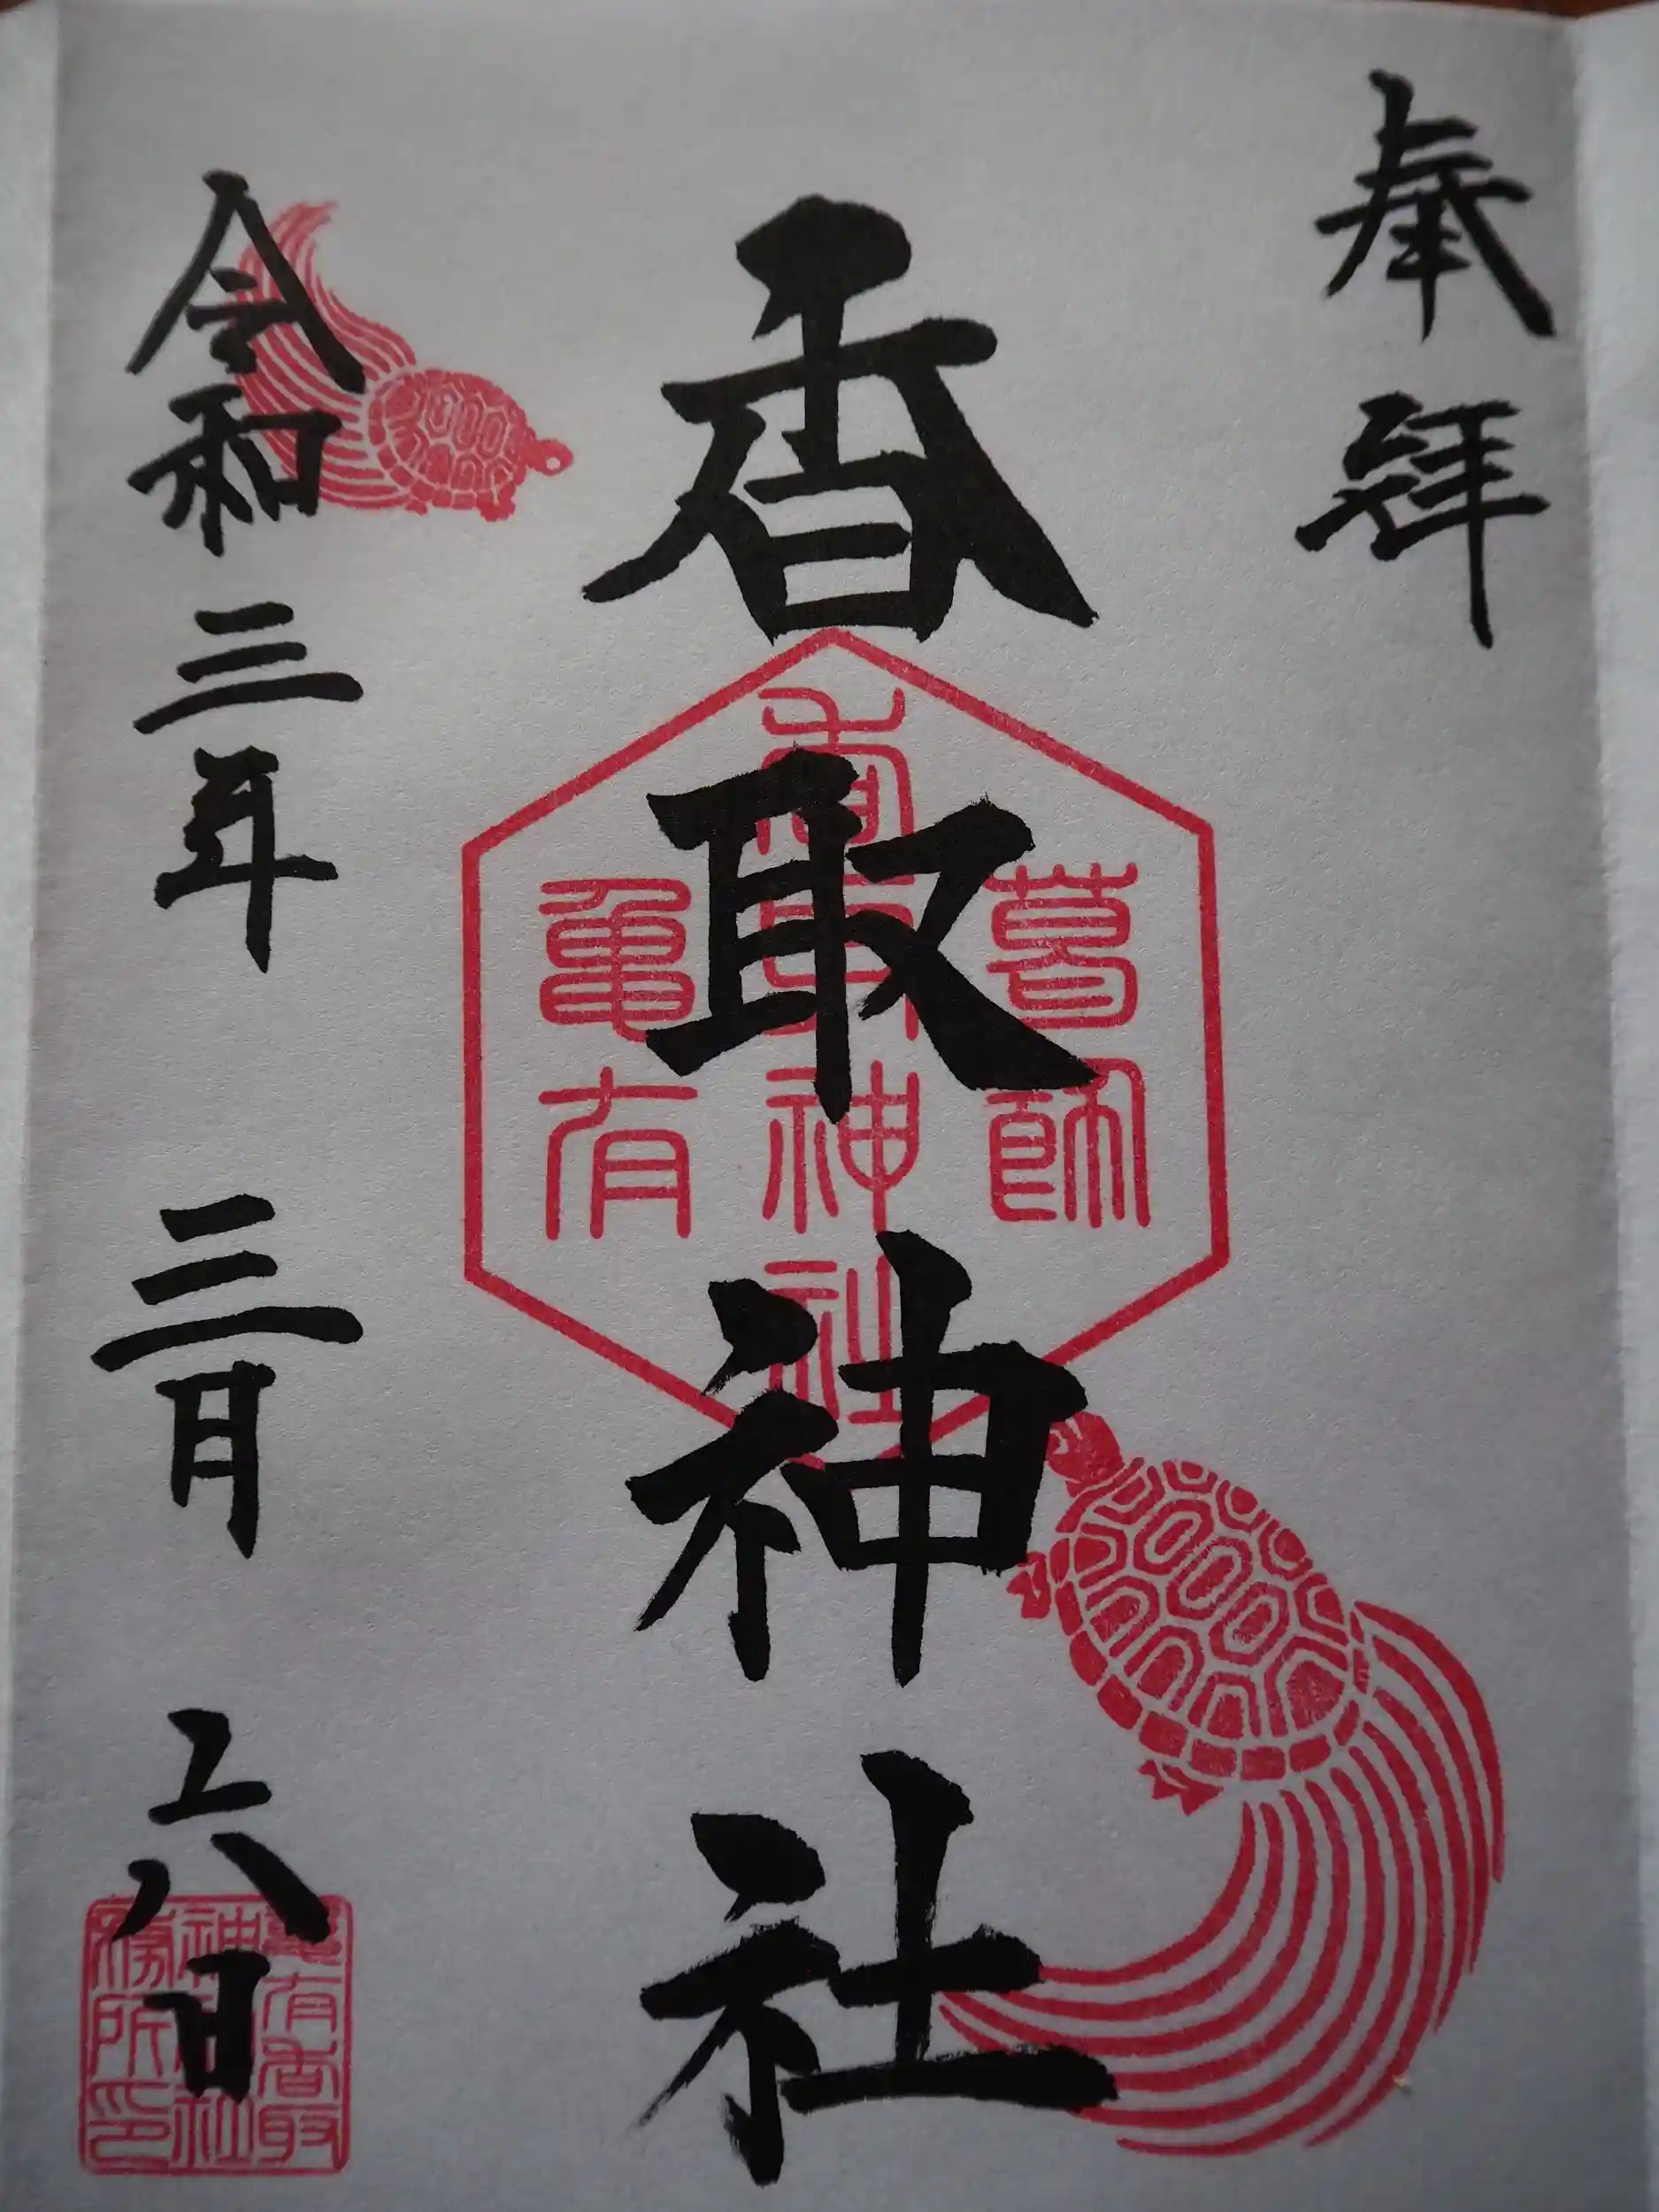 奉拝
香取神社
葛師
香取神社
亀有
令和三年三月六日
亀有香取
神社
務所印